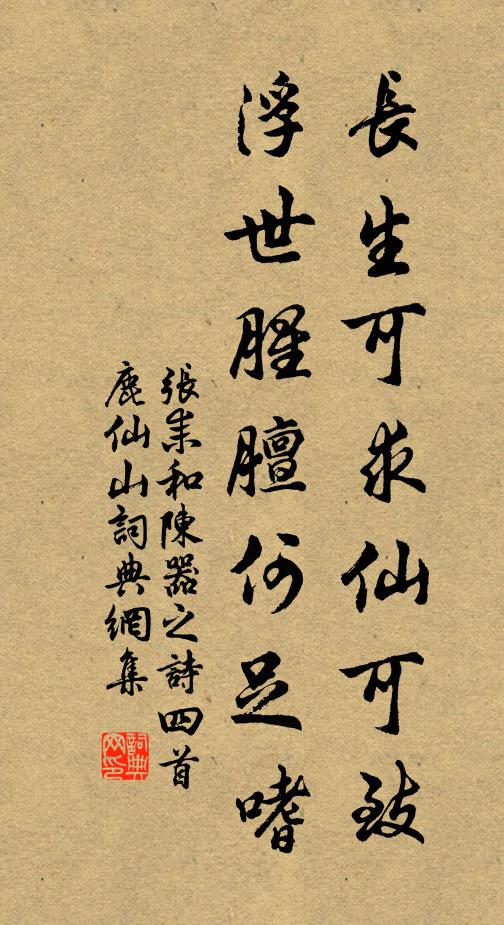 長生可求仙可致
浮世腥膻何足嗜
張耒和陳器之詩四首
鹿仙山詞典網集
詞典
网印